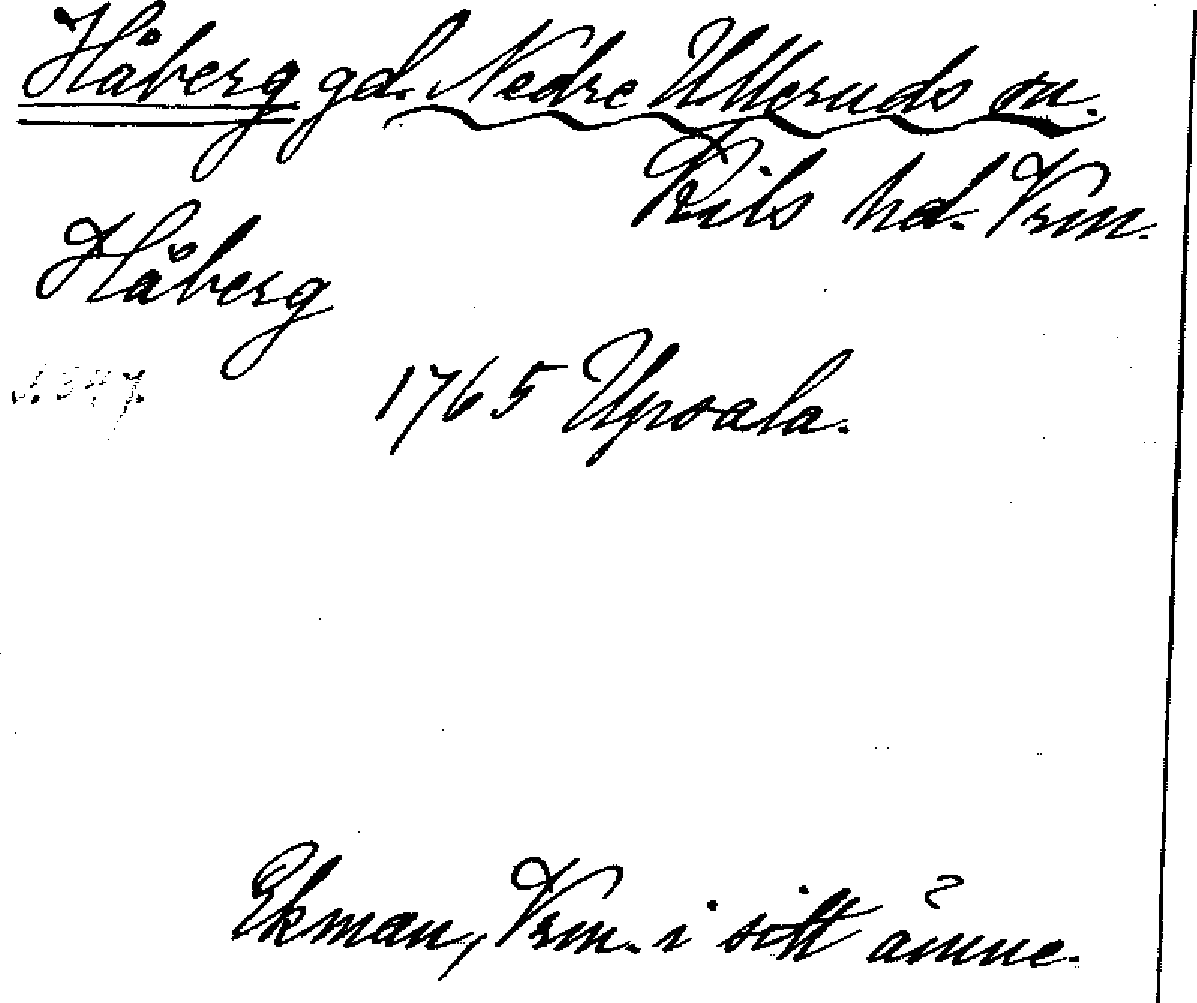 Håberg gd. Nedre Ulleruds sn.
Kils hd. Vrm.
Håberg
s. 347.
1765 Upsala.
Ekman, Vrm. i sitt ämne.